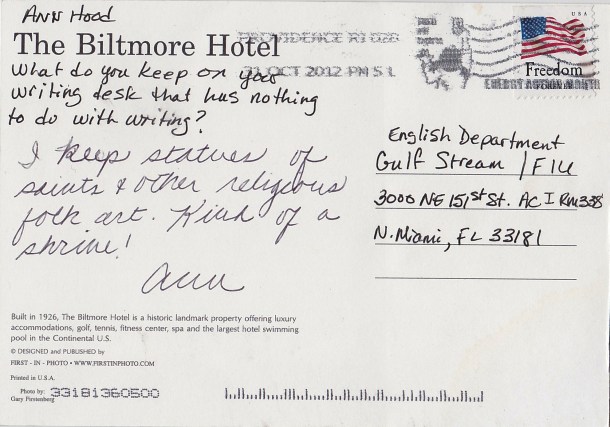 Ann Hood
The Biltmore Hotel
PROVIDENCE RI 028
31 OCT 2012 PM 5 L
USA
Freedom
What do you keep on your
writing desk that has nothing
to do with writing?
I keep statues of
saints & other religious
folk art. Kind of a
shrine!
Ann
English Department
Gulf Stream / FIU
3000 NE 151st St. AC I Rm 338
N. Miami, FL 33181
Built in 1926, The Biltmore Hotel is a historic landmark property offering luxury
accommodations, golf, tennis, fitness center, spa and the largest hotel swimming
pool in the Continental U.S.
© DESIGNED and PUBLISHED by
FIRST - IN - PHOTO • WWW.FIRSTINPHOTO.COM
Printed in U.S.A.
Photo by:
Gary
33181360500